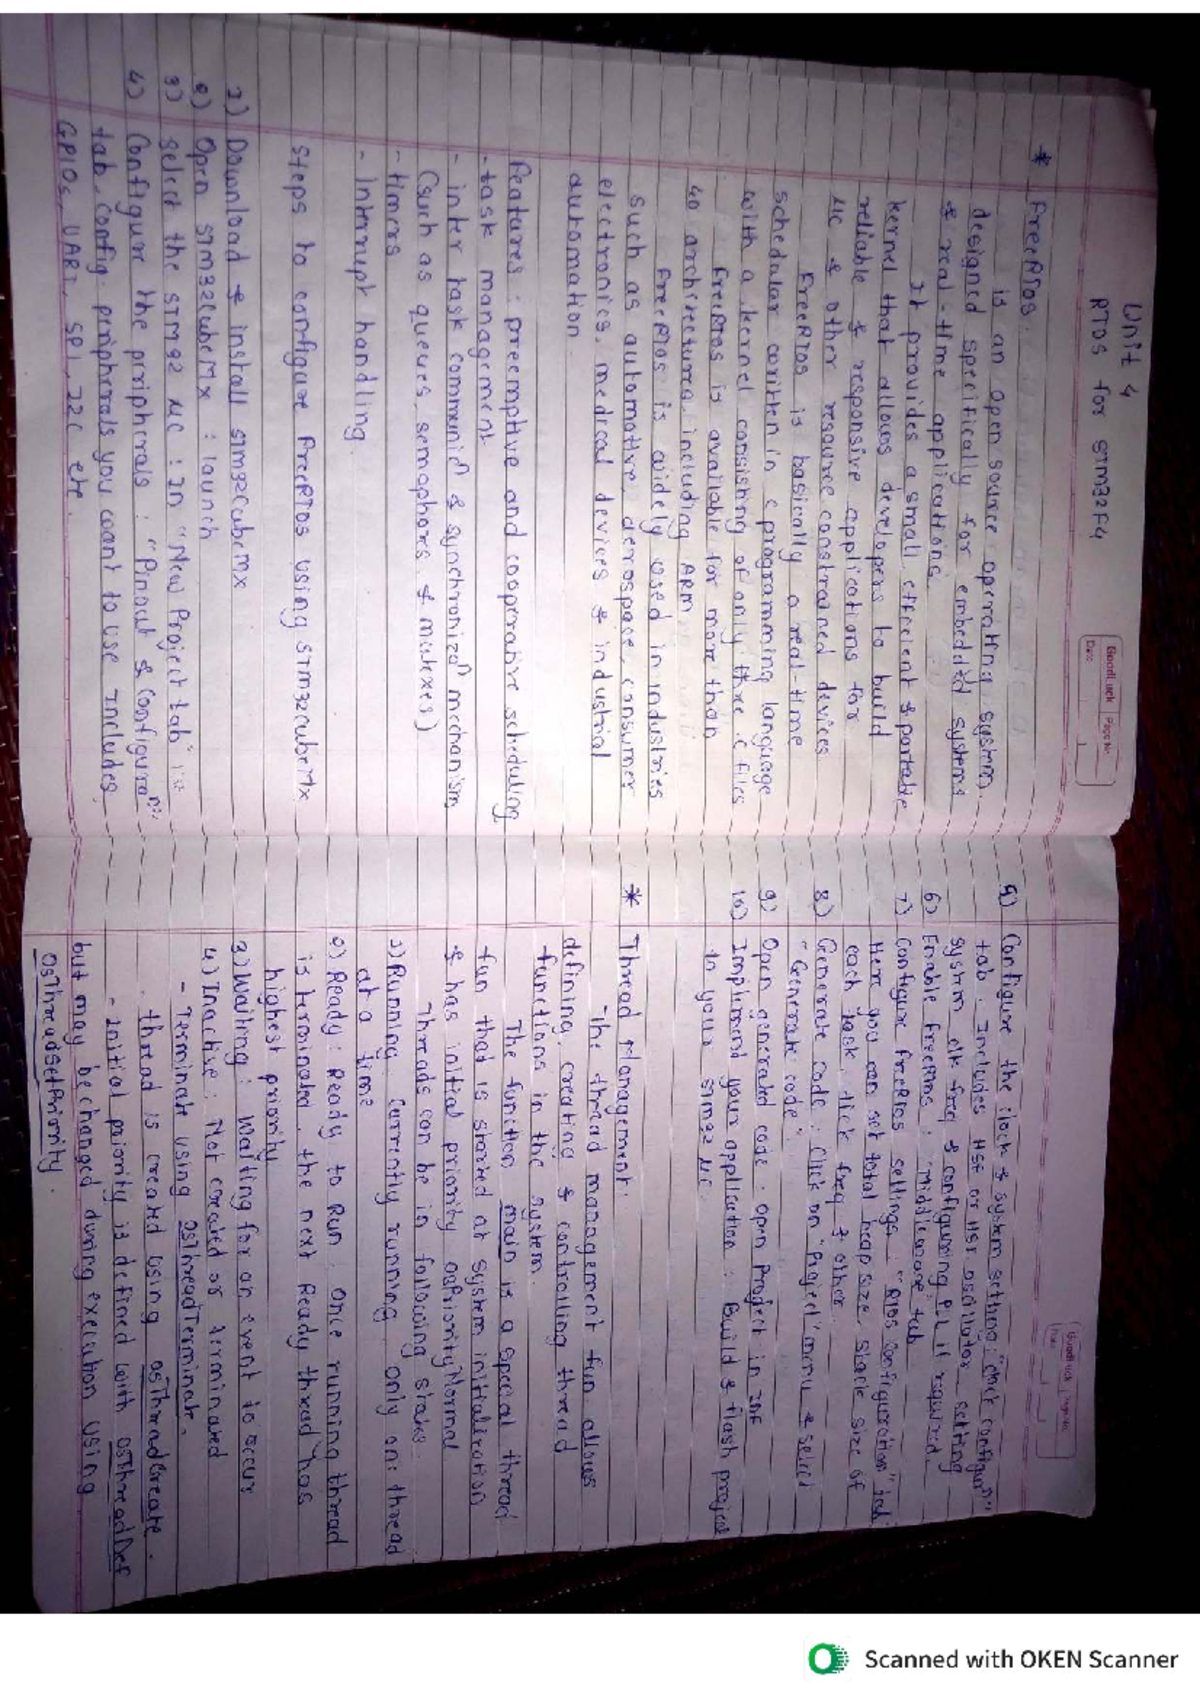 Unit 4
RTOS for STM32F4
GoodLuck Page No.
Date
* FreeRTOS.
is an open source operating system.
designed specifically for embedded systems
& real-time applications.
It provides a small, efficient & portable
kernel that allows developers to build
reliable & responsive applications for
MC & other resource constrained devices
FreeRTOS is basically a real-time
schedular written in c programming language
with a kernel consisting of only three .c files
FreeRTOS is available for more than
40 architectures including ARM
FreeRTOS is widely used in industries
such as automotive, aerospace, consumer
electronics, medical devices & industrial
automation.
Features: preemptive and cooperative scheduling
- task management
- inter task communicⁿ & synchronizaⁿ mechanism
(such as queues, semaphors & mutexes)
- timers
- Interrupt handling.
Steps to configure FreeRTOS using STM32CubeMX
1) Download & install STM32CubeMX
2) Open STM32CubeMX : launch
3) select the STM32 MC : In "New Project tab"
4) Configure the peripherals : "Pinout & Configuraⁿ"
tab, config. peripherals you want to use Includes
GPIOs, UART, SPI, I2C etc.
GoodLuck Page No.
Date
5) Configure the clock & system setting: "clock configurⁿ"
tab. Includes HSE or HSI oscillator, setting
system clk freq & configuring PLL if required.
6) Enable FreeRTOS : "Middleware" tab
7) Configure FreeRTOS settings : "RTOS Configuration" tab
Here you can set total heap size, stack size of
each task, tick freq & other
8) Generate code : Click on "Project" menu & select
"Generate code".
9) Open generated code : open Project in IDE
10) Implement your application : Build & flash project
to your STM32 MC.
* Thread Management.
The thread management fun allows
defining, creating & controlling thread
functions in the system.
The function main is a special thread
fun that is started at system initialization
& has initial priority osPriorityNormal
Threads can be in following states.
1) Running : Currently running, only one thread
at a time
2) Ready : Ready to Run : once running thread
is terminated, the next Ready thread has
highest priority
3) Waiting : Waiting for an event to occur
4) Inactive : Not created or terminated
- Terminate using osThreadTerminate.
- thread is created using osThreadCreate.
- Initial priority is defined with osThreadDef
but may be changed during execution using
osThreadSetPriority.
Scanned with OKEN Scanner